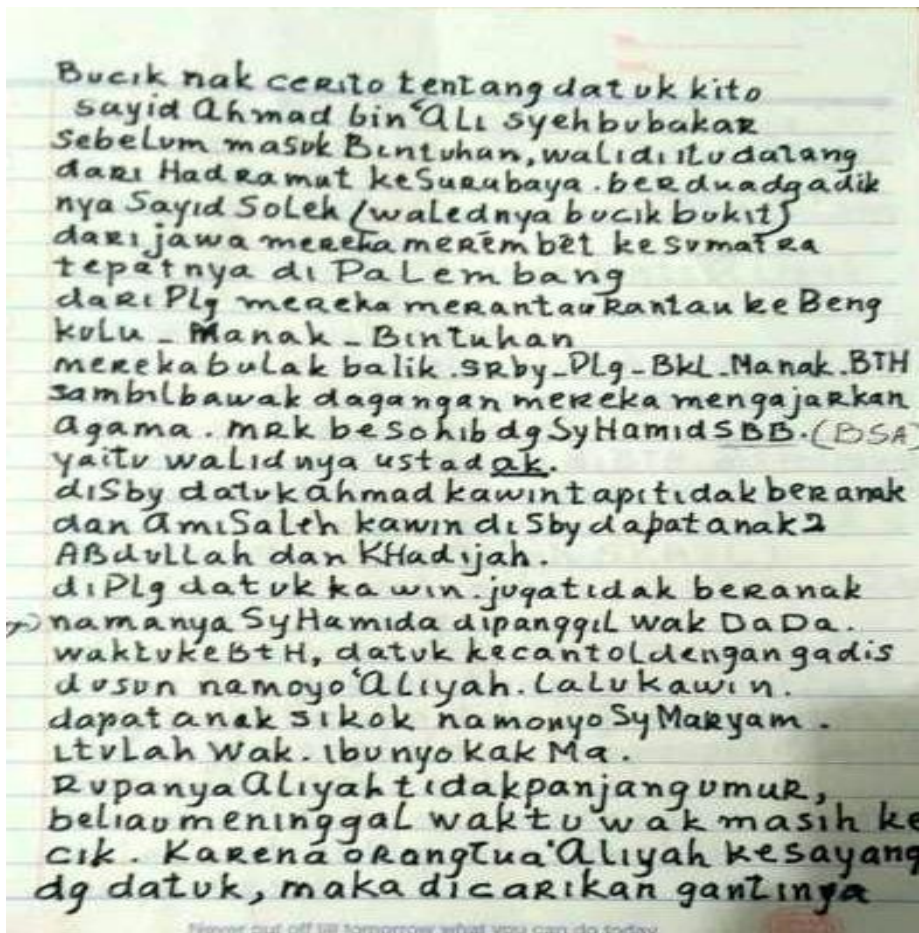 Bucik nak cerito tentang datuk kito
sayid Ahmad bin 'Ali syehbubakar
sebelum masuk Bintuhan, walid itu datang
dari Hadramut keSurubaya. berduadgadik
nya Sayid Soleh (walednya bucik bukit)
dari jawa mereka merembet ke sumatra
tepatnya di Palembang
dari Plg mereka merantau Rantau ke Beng
kulu - Manak - Bintuhan
mereka bulak balik. SRby-Plg-BKL-Manak-BTH
sambil bawak dagangan mereka mengajarkan
agama. mrk besohib dg Sy Hamid SBB. (BSA)
yaitu walidnya ustad ak.
diSby datuk ahmad kawin tapi tidak beranak
dan ami Saleh kawin di Sby dapat anak 2
ABdullah dan KHadijah.
di Plg datuk kawin. juga tidak beranak
namanya Sy Hamida dipanggil wak DaDa.
waktu ke BtH, datuk kecantol dengan gadis
dusun namoyo 'Aliyah. Lalu kawin.
dapat anak sikok namonyo Sy Maryam.
itulah Wak. Ibunyo kak Ma.
Rupanya Aliyah tidak panjang umur,
beliau meninggal waktu wak masih ke
cik. Karena orang tua 'Aliyah kesayang
dg datuk, maka dicarikan gantinya
Never put off till tomorrow what you can do today